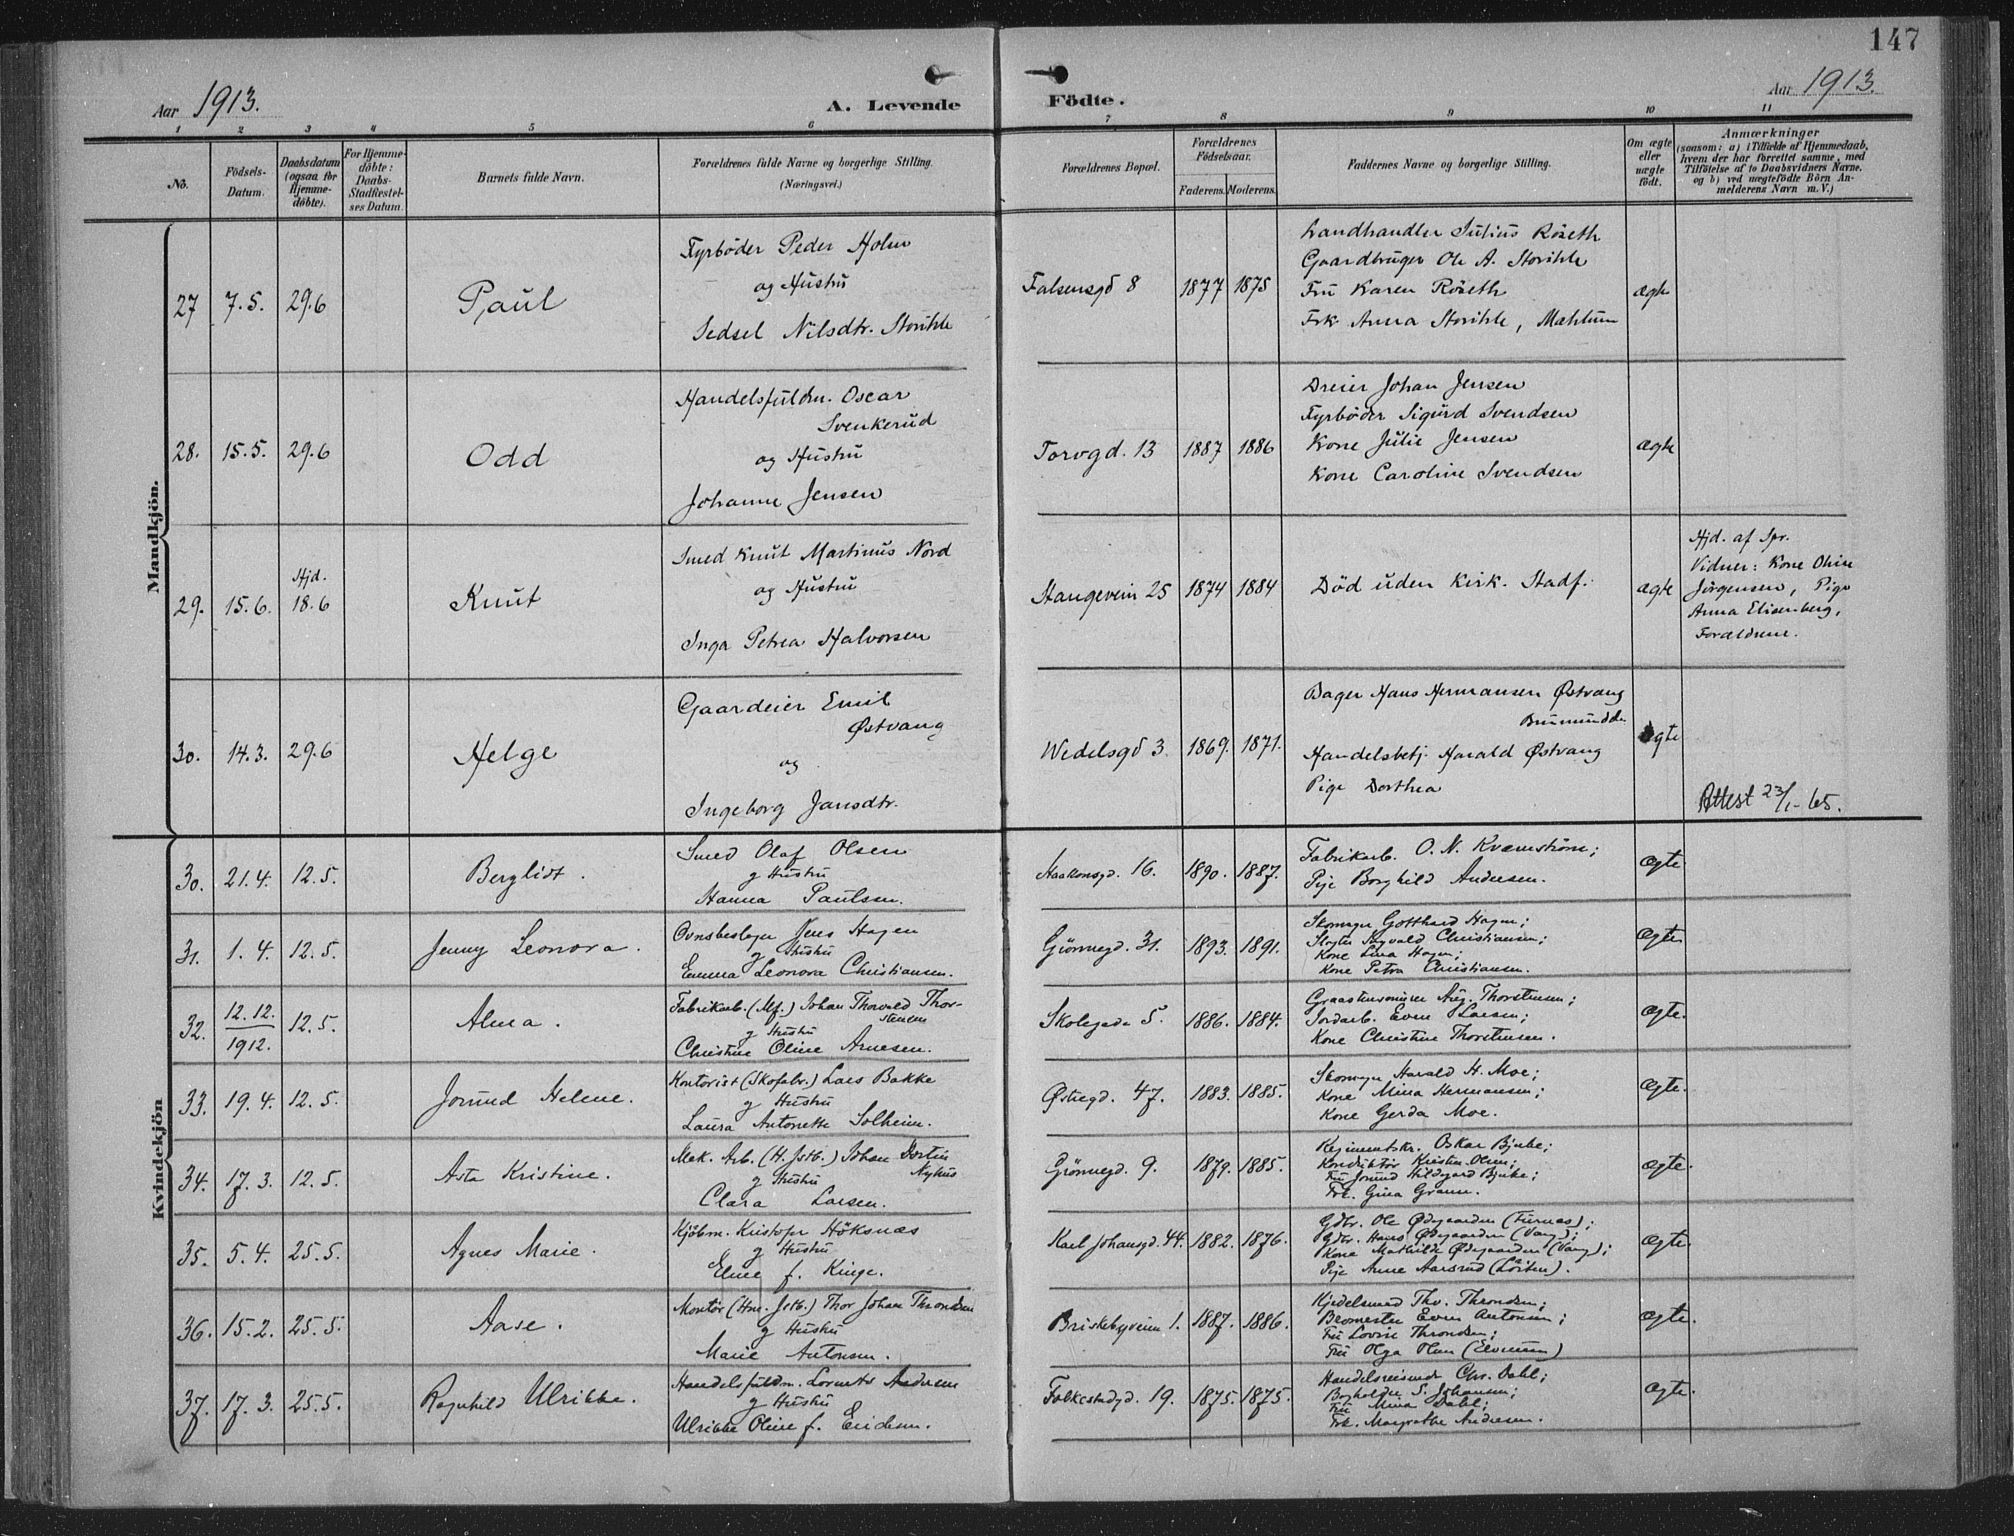 147
Aar 1913.
A. Levende Födte.
Aar 1913.
1 2 3 4 5 6 7 8 9 10 11
No.
Födsels-
Datum.
Daabsdatum
(ogsaa for
Hjemme-
döbte).
For Hjemme-
döbte:
Daabs-
Stadfæstel-
ses Datum.
Barnets fulde Navn.
Forældrenes fulde Navne og borgerlige Stilling.
(Næringsvei.)
Forældrenes Bopæl.
Forældrenes
Födselsaar.
Faderens. Moderens.
Faddernes Navne og borgerlige Stilling.
Om ægte
eller
uægte
födt.
Anmærkninger
(saasom: a) i Tilfælde af Hjemmedaab,
hvem der har forrettet samme, med
Tilföielse af to Daabsvidners Navne.
og b) ved uægtefödte Börn An-
melderens Navn m. V.)
Mandkjön.
27 7.5. 29.6 Paul
Fyrbøder Peder Holm
og Hustru
Sedsel Nilsdtr. Storihle
Falsensgd 8 1877 1875
Landhandler Julius Röseth
Gaardbruger Ole A. Storihle
Fru Karen Röseth
Frk. Anna Storihle, Mæhlum
ægte
28. 15.5. 29.6 Odd
Handelsfuldm. Oscar
Svenkerud
og Hustru
Johanne Jensen
Torvgd. 13 1887 1886
Dreier Johan Jensen
Fyrbøder Sigurd Svendsen
Kone Julie Jensen
Kone Caroline Svendsen
ægte
29. 15.6. Hjd.
18.6 Knut
Smed Knut Martinus Nord
og Hustru
Inga Petrea Halvorsen
Stangevein 25 1874 1884
Død uden kirk. Stadf.
ægte
Hjd. af Spr.
Vidner: Kone Oline
Jörgensen, Pige
Anna Elisenberg,
Forældrene.
30. 14.3. 29.6 Helge
Gaardeier Emil
Østvang
og
Ingeborg Jansdtr.
Wedelsgd 3 1869. 1871.
Bager Hans Hermansen Østvang
Brumundda.
Handelsbetj. Harald Østvang
Pige Dorthea
ægte
Attest 23/1-65.
Kvindekjön
30. 21.4. 12.5. Bergliot.
Smed Olaf Olsen
og Hustru
Hanna Paulsen.
Haakonsgd. 16. 1890. 1887.
Fabrikarb. O. N. Kværnström;
Pige Borghild Andersen.
ægte
31. 1.4. 12.5. Jenny Leonora.
Ovnsbeslager Jens Hagen
og Hustru
Emma Leonora Christiansen.
Grønnegd. 31. 1893. 1891.
Skomager Gotthard Hagen;
Sigvald Christiansen;
Kone Lina Hagen;
Kone Petra Christiansen.
ægte
32. 12.12.
1912. 12.5. Alma.
Fabrikarb. (Mf.) Johan Thorvald Thor-
stensen
og Hustru
Christine Oline Arnesen.
Skolegade 5. 1886. 1884.
Graastensminer Aug. Thorstensen;
Jordarb. Even Larsen;
Kone Christine Thorstensen.
ægte.
33. 19.4. 12.5. Jorund Helene.
Kontorist (Skofabr.) Lars Bakke
og Hustru
Laura Antonette Solheim.
Østregd. 47. 1883. 1885.
Skomager Harald H. Moe;
Kone Mina Hermansen;
Kone Gerda Moe.
ægte.
34. 17.3. 12.5. Asta Kristine.
Mek. Arb. (H. Jstb.) Johan Dortin
Nyhus
og Hustru
Clara Larsen.
Grønnegd. 9. 1879. 1885.
Regimentskr. Oskar Bjerke;
Konduktør Kristen Olsen;
Fru Jorund Hildegard Bjerke;
Frk. Gina Gram.
ægte.
35. 5.4. 25.5. Agnes Marie.
Kjöbm. Kristofer Höksnæs
og Hustru
Eline f. Kinge.
Karl Johansgd. 44. 1882. 1876.
Gdbr. Ole Ødegaarden (Furnes);
Gdbr. Hans Ødegaarden (Vang);
Kone Mathilde Ødegaarden (Vang);
Pige Anne Aarsrud (Löiten).
ægte.
36. 15.2. 25.5. Aase.
Montör (Hm. Jstb.) Thor Johan Throndsen
og Hustru
Marie Antonsen.
Briskebyveien 1. 1887. 1886.
Kjedelsmed Thv. Throndsen;
Bromester Even Antonsen;
Fru Lovise Throndsen;
Fru Olga Olsen (Elverum)
ægte.
37. 17.3. 25.5. Ragnhild Ulrikke.
Handelsfuldm. Lorents Andersen
og Hustru
Ulrikke Oline f. Ericksen.
Folkestadgd. 19. 1875. 1875.
Handelsreisende Chr. Dahl;
Bogholder S. Johansen;
Fru Mina Dahl;
Frk. Margrethe Andersen.
ægte.